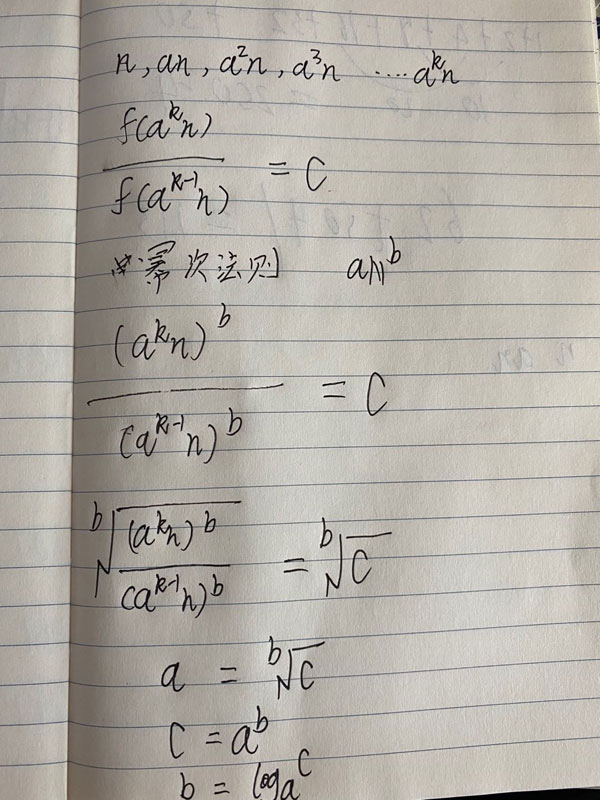 n, an, a²n, a³n ····aᵏn
f(aᵏn)
f(aᵏ⁻¹n)
= C
由幂次法则 anᵇ
(aᵏn)ᵇ
(aᵏ⁻¹n)ᵇ
= C
ᵇ√((aᵏn)ᵇ/(aᵏ⁻¹n)ᵇ) = ᵇ√C
a = ᵇ√C
C = aᵇ
b = logₐC